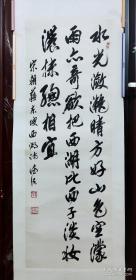 水光潋滟晴方好山色空濛
雨亦奇欲把西湖比西子淡妆
浓抹总相宜
宋朝苏东坡西湖诗